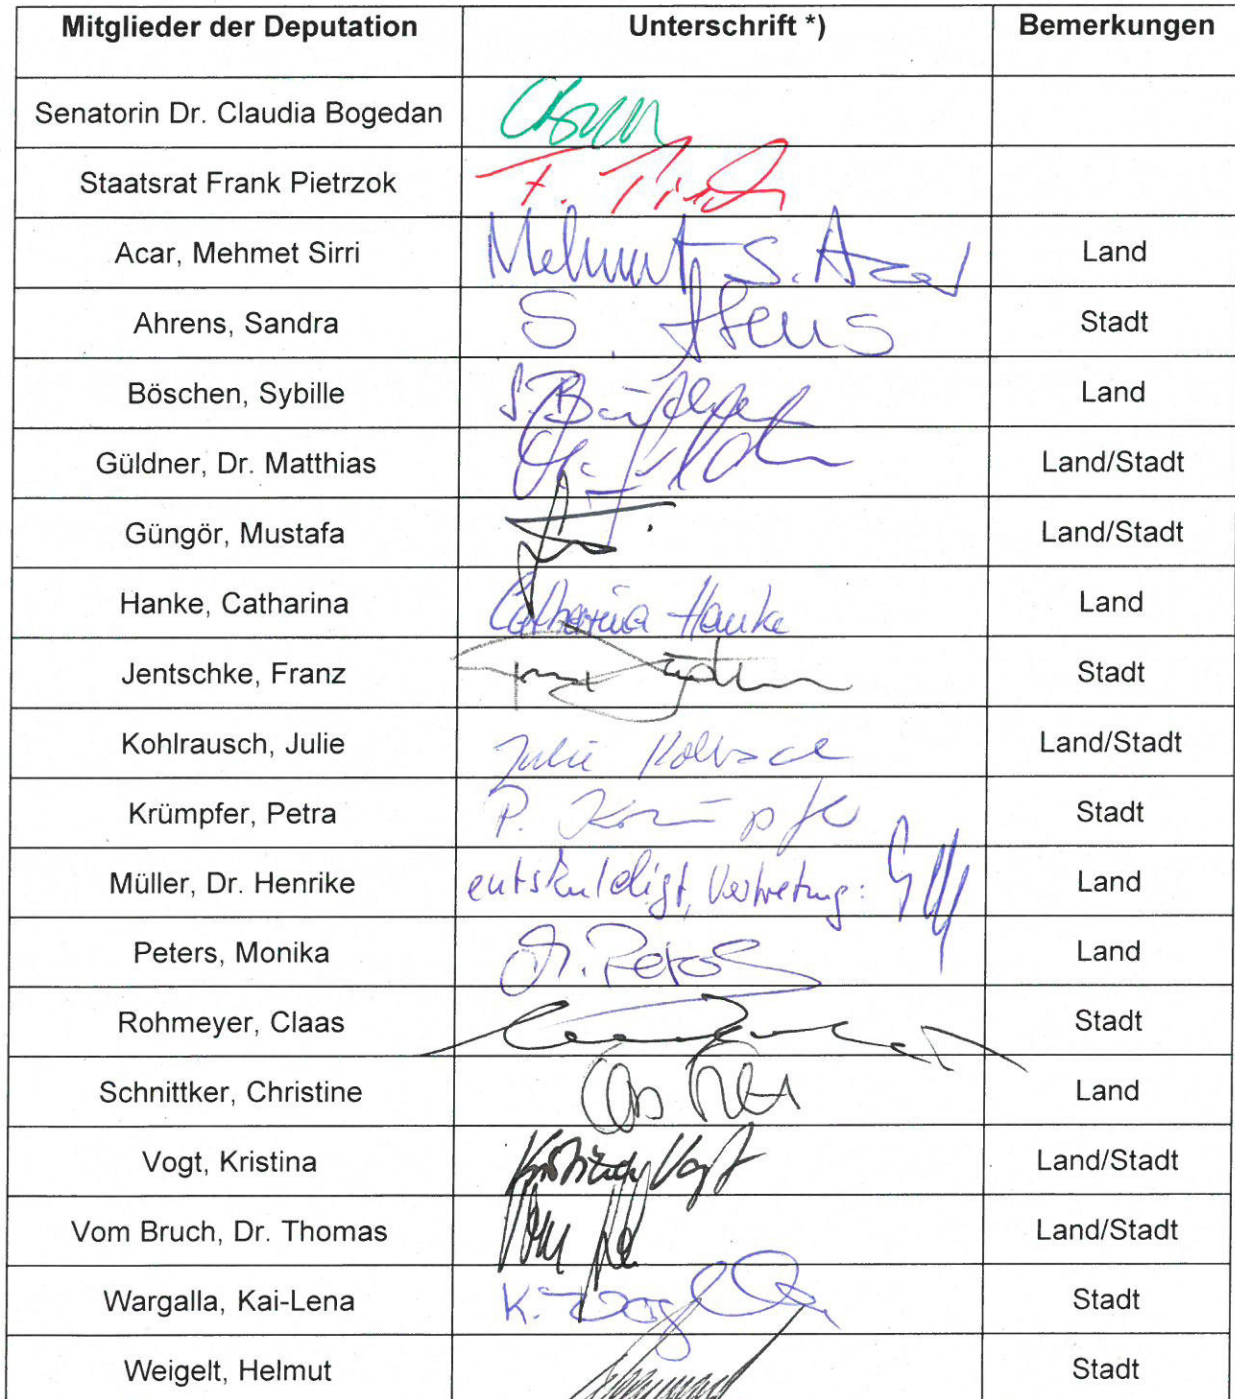 Mitglieder der Deputation Unterschrift *) Bemerkungen
Senatorin Dr. Claudia Bogedan
Staatsrat Frank Pietrzok
Acar, Mehmet Sirri Mehmet S. Acar Land
Ahrens, Sandra S. Ahrens Stadt
Böschen, Sybille Land
Güldner, Dr. Matthias Land/Stadt
Güngör, Mustafa Land/Stadt
Hanke, Catharina Catharina Hanke Land
Jentschke, Franz Stadt
Kohlrausch, Julie Julie Land/Stadt
Krümpfer, Petra P. Krümpfer Stadt
Müller, Dr. Henrike entschuldigt, Vertretung: Land
Peters, Monika M. Peters Land
Rohmeyer, Claas Stadt
Schnittker, Christine Land
Vogt, Kristina Kristina Vogt Land/Stadt
Vom Bruch, Dr. Thomas Land/Stadt
Wargalla, Kai-Lena Stadt
Weigelt, Helmut Stadt